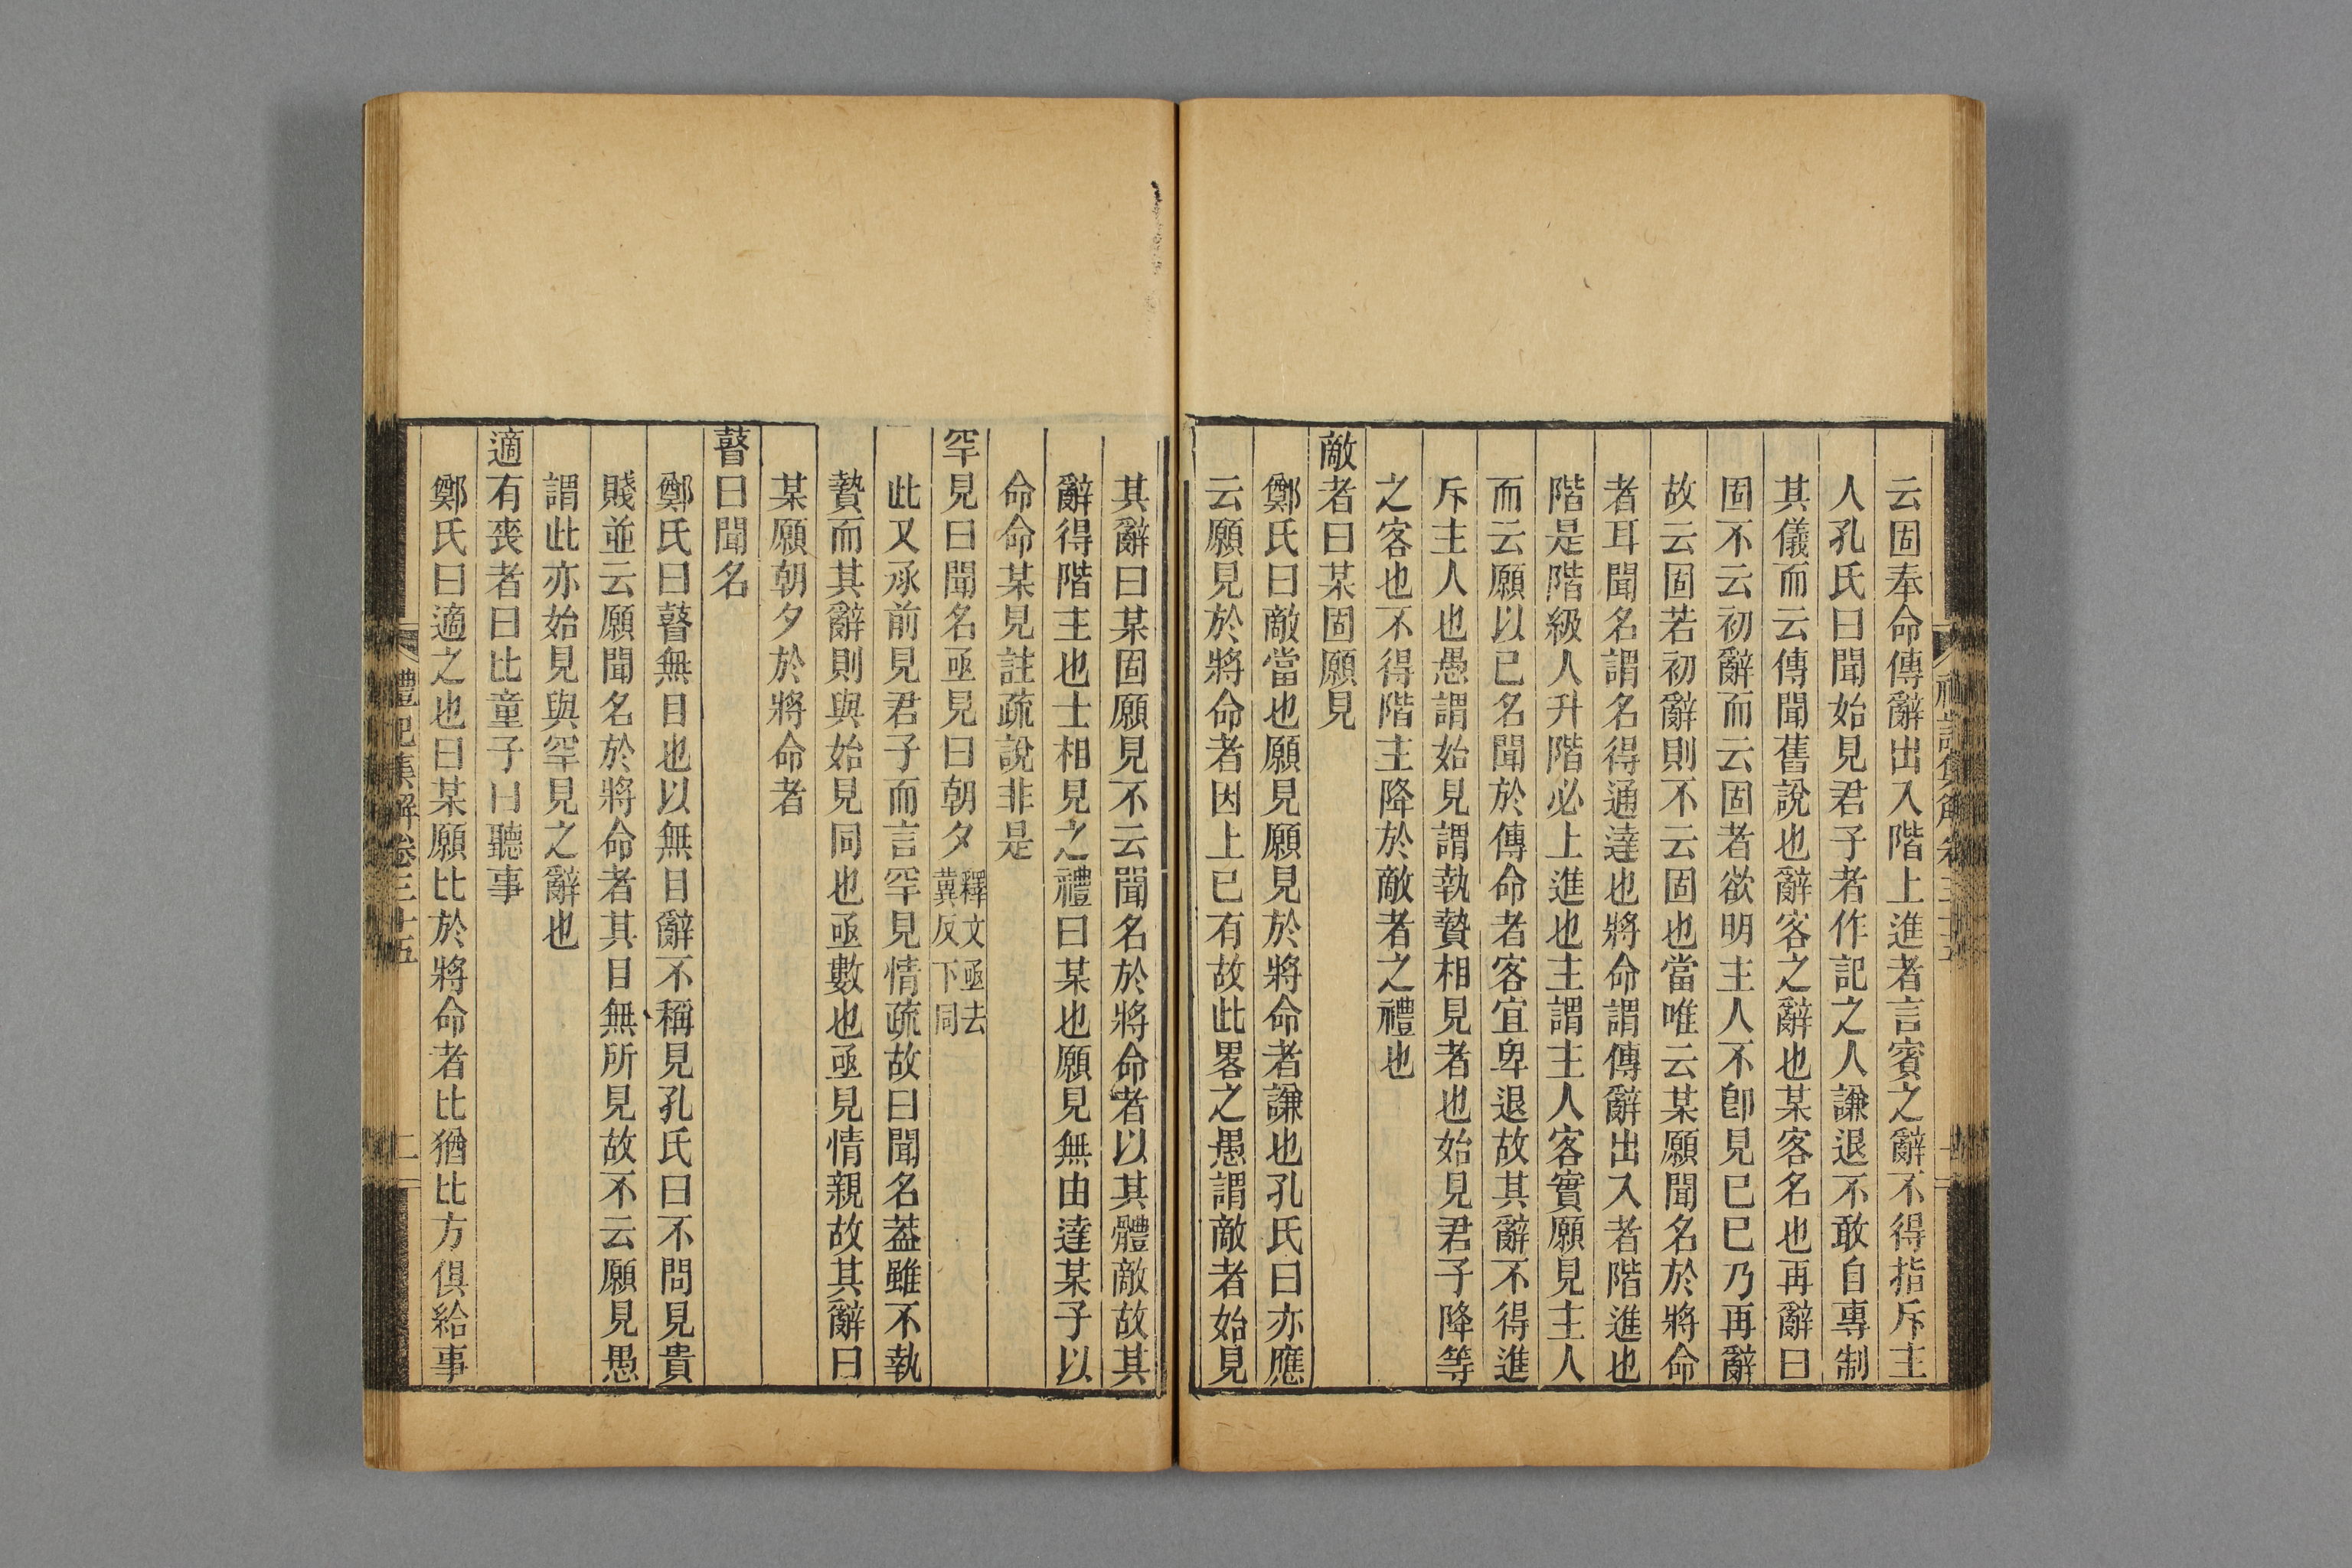 云固奉命傳辭出入階上進者言賓之辭不得指斥主
人孔氏曰聞始見君子者作記之人謙退不敢自專制
其儀而云傳聞舊說也辭客之辭也某客名也再辭曰
固不云初辭而云固者欲明主人不卽見已已乃再辭
故云固若初辭則不云固也當唯云某願聞名於將命
者耳聞名謂名得通達也將命謂傳辭出入者階進也
階是階級人升階必上進也主謂主人客實願見主人
而云願以已名聞於傳命者客宜卑退故其辭不得進
斥主人也愚謂始見謂執贄相見者也始見君子降等
之客也不得階主降於敵者之禮也
敵者曰某固願見
鄭氏曰敵當也願見願見於將命者謙也孔氏曰亦應
云願見於將命者因上已有故此畧之愚謂敵者始見
其辭曰某固願見不云聞名於將命者以其體敵故其
辭得階主也士相見之禮曰某也願見無由達某子以
命命某見註疏說非是
罕見曰聞名亟見曰朝夕釋文亟去
冀反下同
此又承前見君子而言罕見情疏故曰聞名葢雖不執
贄而其辭則與始見同也亟數也亟見情親故其辭曰
某願朝夕於將命者
瞽曰聞名
鄭氏曰瞽無目也以無目辭不稱見孔氏曰不問見貴
賤並云願聞名於將命者其目無所見故不云願見愚
謂此亦始見與罕見之辭也
適有喪者曰比童子曰聽事
鄭氏曰適之也曰某願比於將命者比猶比方俱給事
禮記集解卷三十五
二